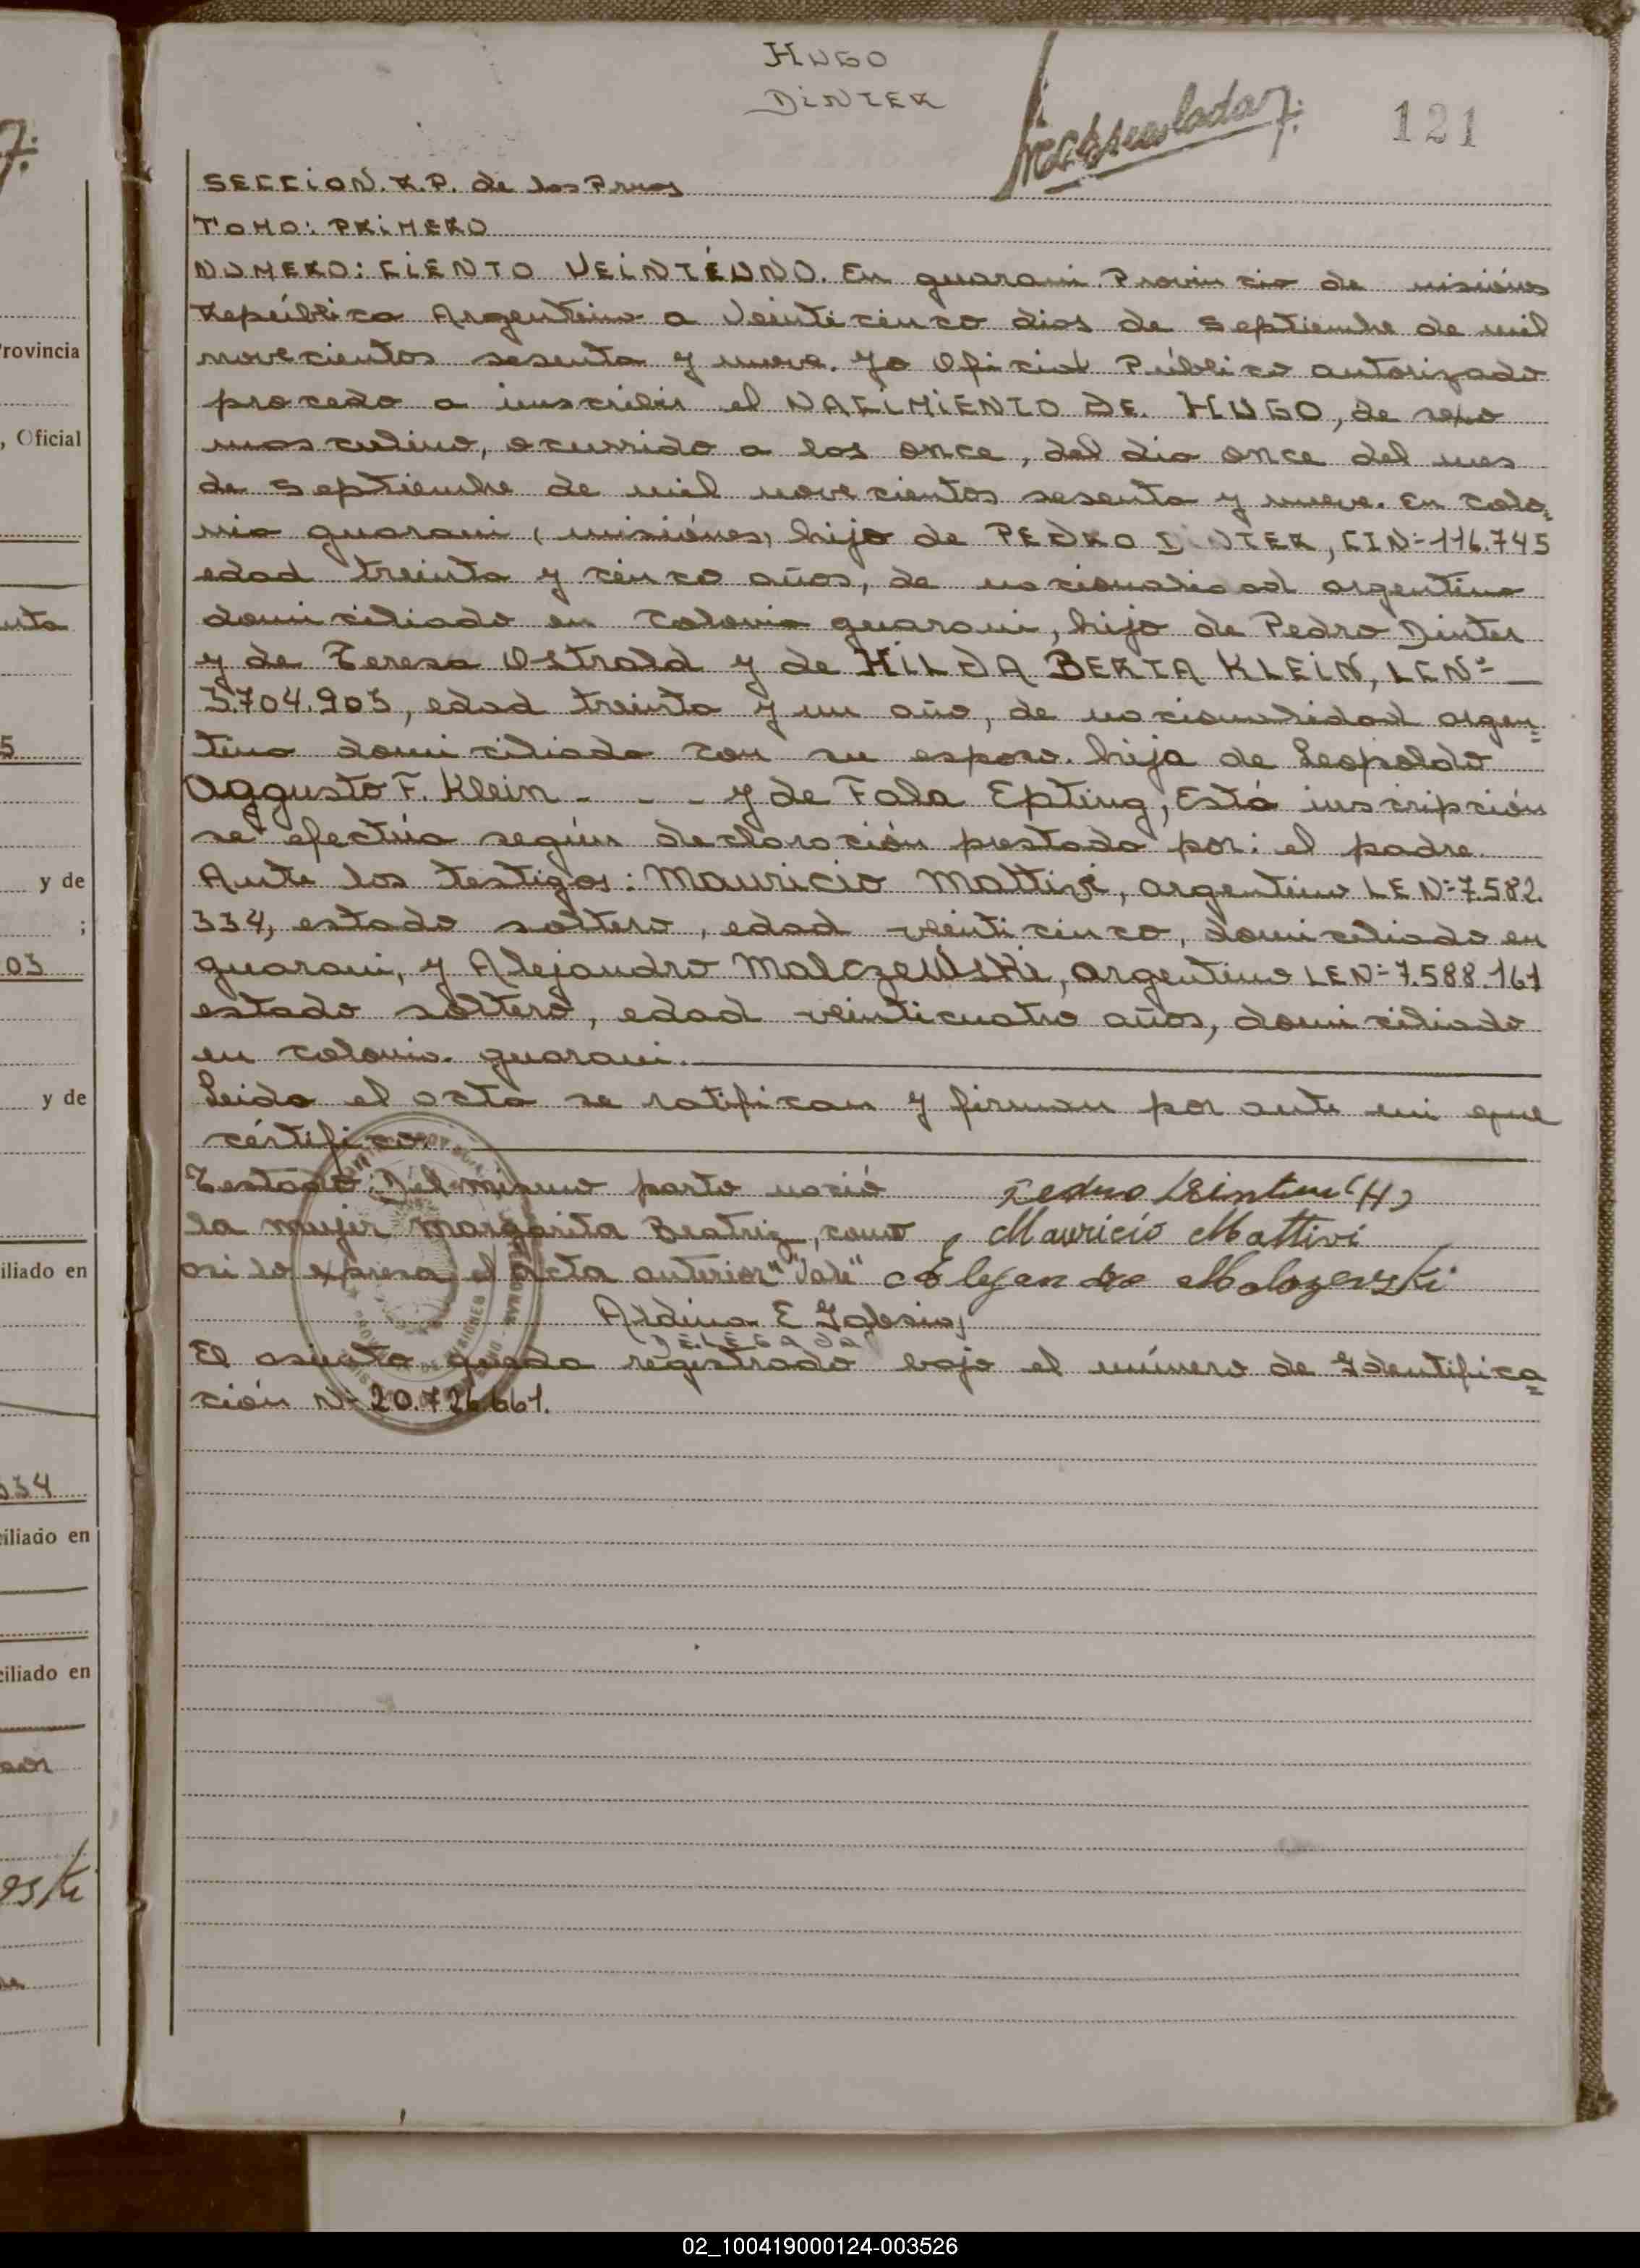 HUGO
DINTER
121
SECCION. R.P. de los
TOMO: PRIMERO
NUMERO: CIENTO VEINTÉUNO. En guarani Provincia de misiónes
República Argentina a Veinticinco dias de septiembre de mil
novecientos sesenta y nueve. yo Oficial Público autorizado
procedo a inscribir el NACIMIENTO DE. HUGO, de sexo
masculino, ocurrido a las once, del dia once del mes
de septiembre de mil novecientos sesenta y nueve. En colo=
nia guarani (misiónes) hijo de PEDRO DINTER, CIN:-116.745
edad treinta y cinco años, de nacionalidad argentina
domiciliado en colonia guarani, hijo de Pedro Dinter
y de Teresa Ostrald y de HILDA BERTA KLEIN, LCNº
3.704.903, edad treinta y un año, de nacionalidad argen=
tina domiciliada con su esposo. hija de Leopoldo
Aggusto F. Klein - - - y de Fala Epting, Está inscripción
se efectúa según declaración prestada por: el padre.
Ante los testigos: Mauricio Mattivi, argentino LEN:-7.582.
334, estado soltero, edad veinticinco, domiciliado en
guarani, y Alejandro Malczewski, argentino LEN:-7.588.161
estado soltero, edad veinticuatro años, domiciliado
en colonia guarani.
Leida el acta se ratifican y firman por ante mi que
cértifico.
Testado: Del mismo parto nació
la mujer Margarita Beatriz, como
asi lo expresa el acta anterior" Vale"
Mauricio Mattivi
Aldina E Iglesias
DELEGADA
El asiento queda registrado bajo el número de Identifica=
ción Nº 20.726.661.
rovincia
, Oficial
5
y de
;
03
y de
iliado en
334
ciliado en
ciliado en
02_100419000124-003526